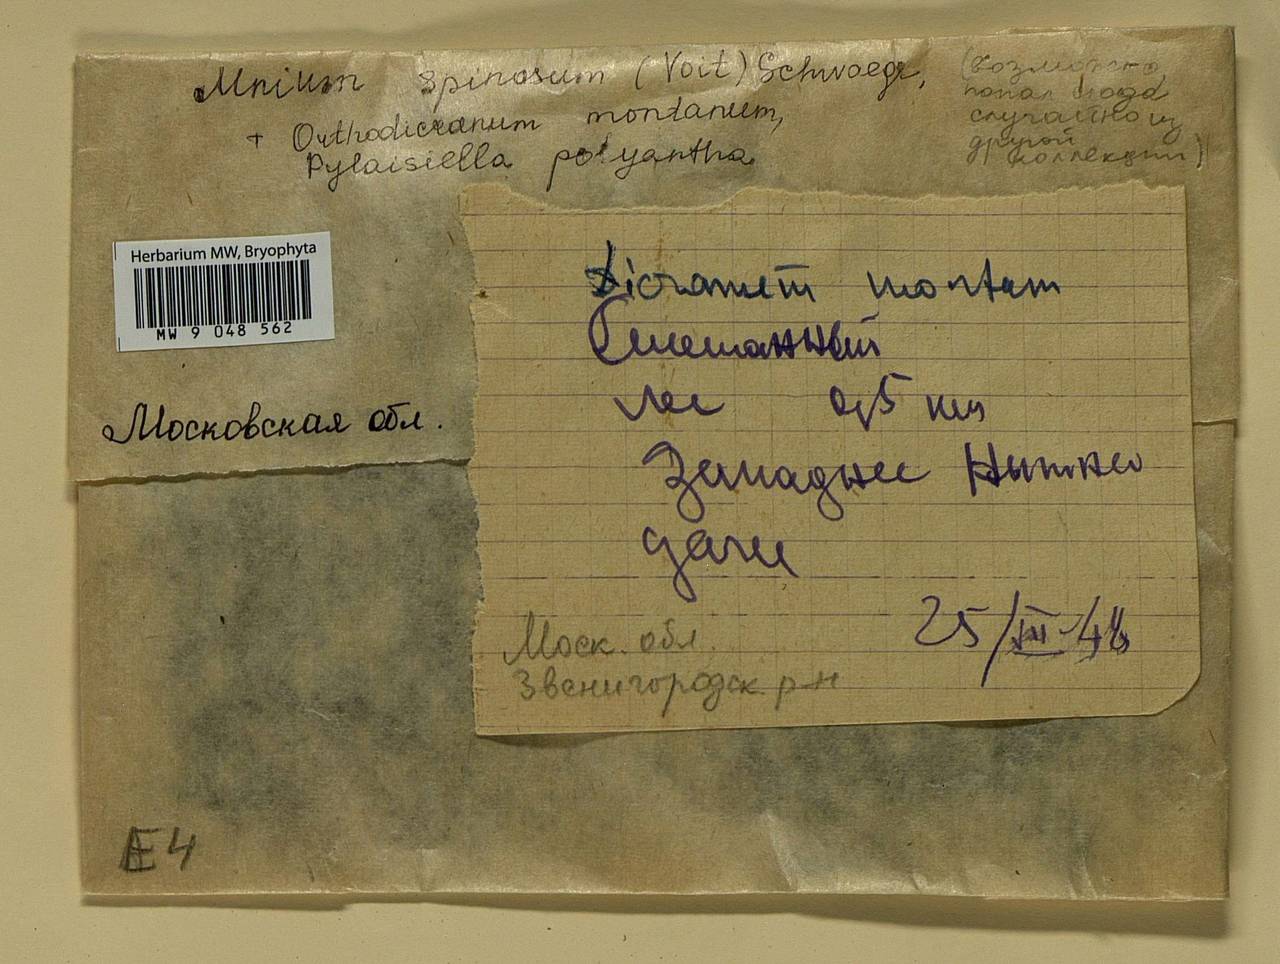 Mnium spinosum (Voit) Schwaegr.,
(возможно,
попал сюда
случайно из
другой
коллекции)
+ Orthodicranum montanum,
Pylaisiella polyantha
Herbarium MW, Bryophyta
MW 9 048 562
Московская обл.
Dicranum montan
Смешанный
лес 0,5 км
Западнее
дачи
25/III-48
Моск. обл.
Звенигородск. р-н
E4